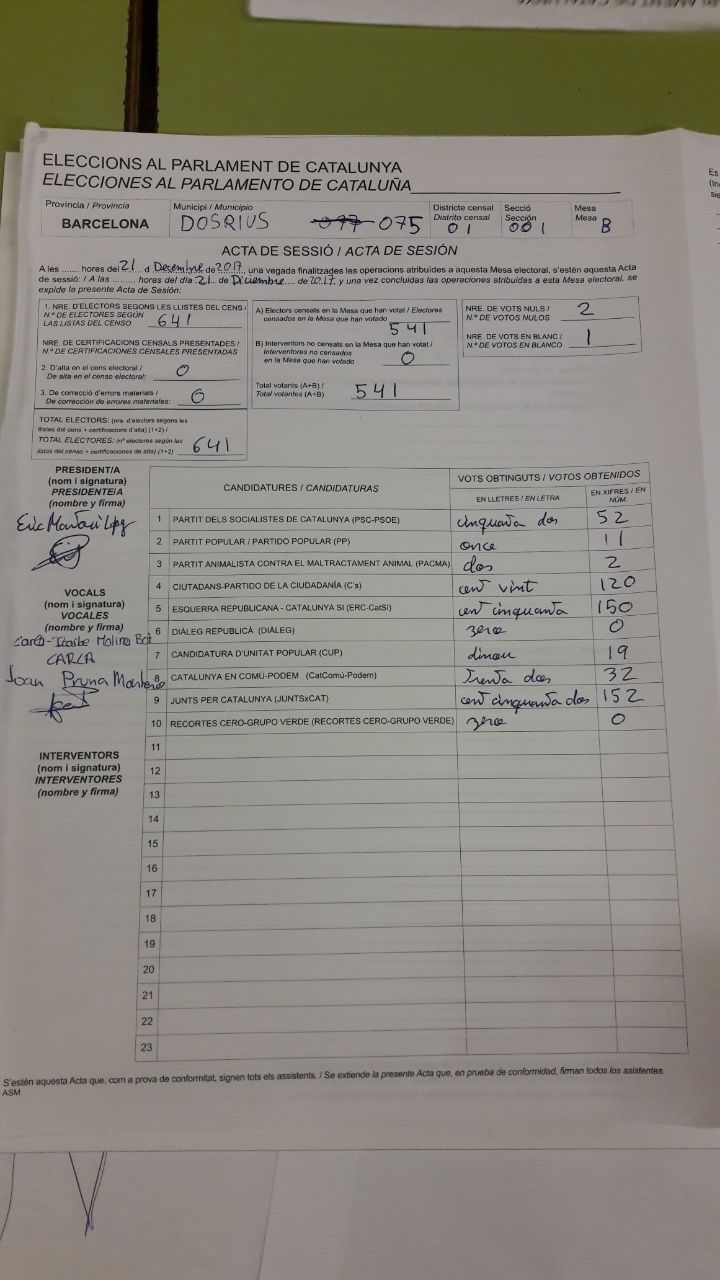 ELECCIONS AL PARLAMENT DE CATALUNYA
ELECCIONES AL PARLAMENTO DE CATALUÑA
Província / Provincia Municipi / Municipio Districte censal Secció Mesa
Distrito censal Sección Mesa
BARCELONA DOSRIUS 075 01 001 B
ACTA DE SESSIÓ / ACTA DE SESIÓN
A les ....... hores del 21 d Decembre de 2017, una vegada finalitzades les operacions atribuïdes a aquesta Mesa electoral, s'estén aquesta Acta
de sessió: / A las ......... horas del día 21 de Diciembre .... de 2017, y una vez concluidas las operaciones atribuidas a esta Mesa electoral, se
expide la presente Acta de Sesión:
1. NRE. D'ELECTORS SEGONS LES LLISTES DEL CENS /
N.º DE ELECTORES SEGÚN
LAS LISTAS DEL CENSO 641
NRE. DE CERTIFICACIONS CENSALS PRESENTADES /
N.º DE CERTIFICACIONES CENSALES PRESENTADAS
2. D'alta en el cens electoral /
De alta en el censo electoral: 0
3. De correcció d'errors materials /
De corrección de errores materiales: 0
TOTAL ELECTORS: (nre. d'electors segons les
llistes del cens + certificacions d'alta) (1+2) /
TOTAL ELECTORES: (nº electores según las
listas del censo + certificaciones de alta) (1+2) 641
A) Electors censats en la Mesa que han votat / Electores
censados en la Mesa que han votado 541
B) Interventors no censats en la Mesa que han votat /
Interventores no censados
en la Mesa que han votado 0
Total votants (A+B) /
Total votantes (A+B) 541
NRE. DE VOTS NULS /
N.º DE VOTOS NULOS 2
NRE. DE VOTS EN BLANC /
N.º DE VOTOS EN BLANCO 1
PRESIDENT/A
(nom i signatura)
PRESIDENTE/A
(nombre y firma)
VOCALS
(nom i signatura)
VOCALES
(nombre y firma)
CARLA
Joan Pruna
INTERVENTORS
(nom i signatura)
INTERVENTORES
(nombre y firma)
CANDIDATURES / CANDIDATURAS VOTS OBTINGUTS / VOTOS OBTENIDOS
EN LLETRES / EN LETRA EN XIFRES / EN NÚM.
1 PARTIT DELS SOCIALISTES DE CATALUNYA (PSC-PSOE) cinquanta dos 52
2 PARTIT POPULAR / PARTIDO POPULAR (PP) once 11
3 PARTIT ANIMALISTA CONTRA EL MALTRACTAMENT ANIMAL (PACMA) dos 2
4 CIUTADANS-PARTIDO DE LA CIUDADANÍA (C's) cent vint 120
5 ESQUERRA REPUBLICANA - CATALUNYA SI (ERC-CatSí) cent cinquanta 150
6 DIÀLEG REPUBLICÀ (DIÀLEG) zero 0
7 CANDIDATURA D'UNITAT POPULAR (CUP) dinou 19
8 CATALUNYA EN COMÚ-PODEM (CatComú-Podem) trenta dos 32
9 JUNTS PER CATALUNYA (JUNTSxCAT) cent cinquanta dos 152
10 RECORTES CERO-GRUPO VERDE (RECORTES CERO-GRUPO VERDE) zero 0
11
12
13
14
15
16
17
18
19
20
21
22
23
S'estén aquesta Acta que, com a prova de conformitat, signen tots els assistents. / Se extiende la presente Acta que, en prueba de conformidad, firman todos los asistentes.
ASM